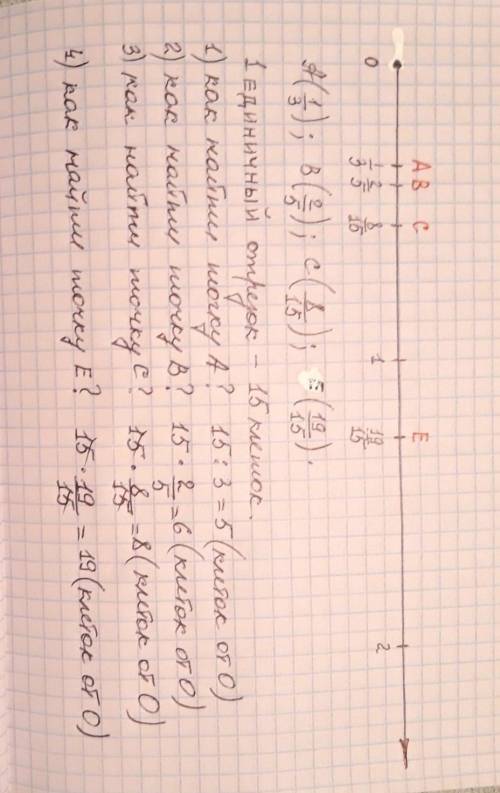 A B C E
0 1/3 2/5 8/15 1 19/15 2
A(1/3); B(2/5); C(8/15); E(19/15).
1 единичный отрезок – 15 клеток.
1) как найти точку A? 15 : 3 = 5 (клеток от 0)
2) как найти точку B? 15 · 2/5 = 6 (клеток от 0)
3) как найти точку C? 15 · 8/15 = 8 (клеток от 0)
4) как найти точку E? 15 · 19/15 = 19 (клеток от 0)